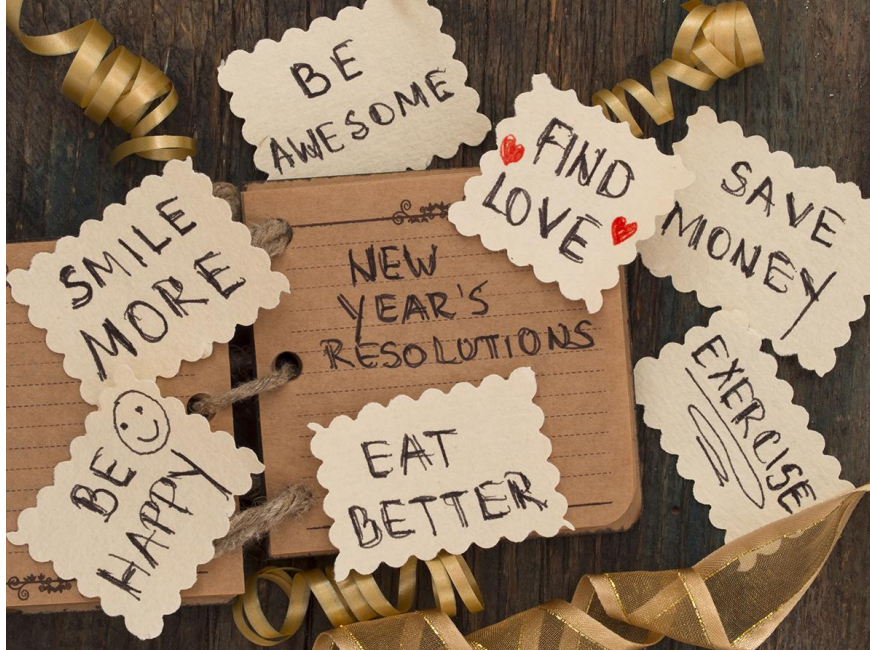 BE
AWESOME
FIND
LOVE
SAVE
MONEY
SMILE
MORE
NEW
YEAR'S
RESOLUTIONS
EXERCISE
BE
HAPPY
EAT
BETTER